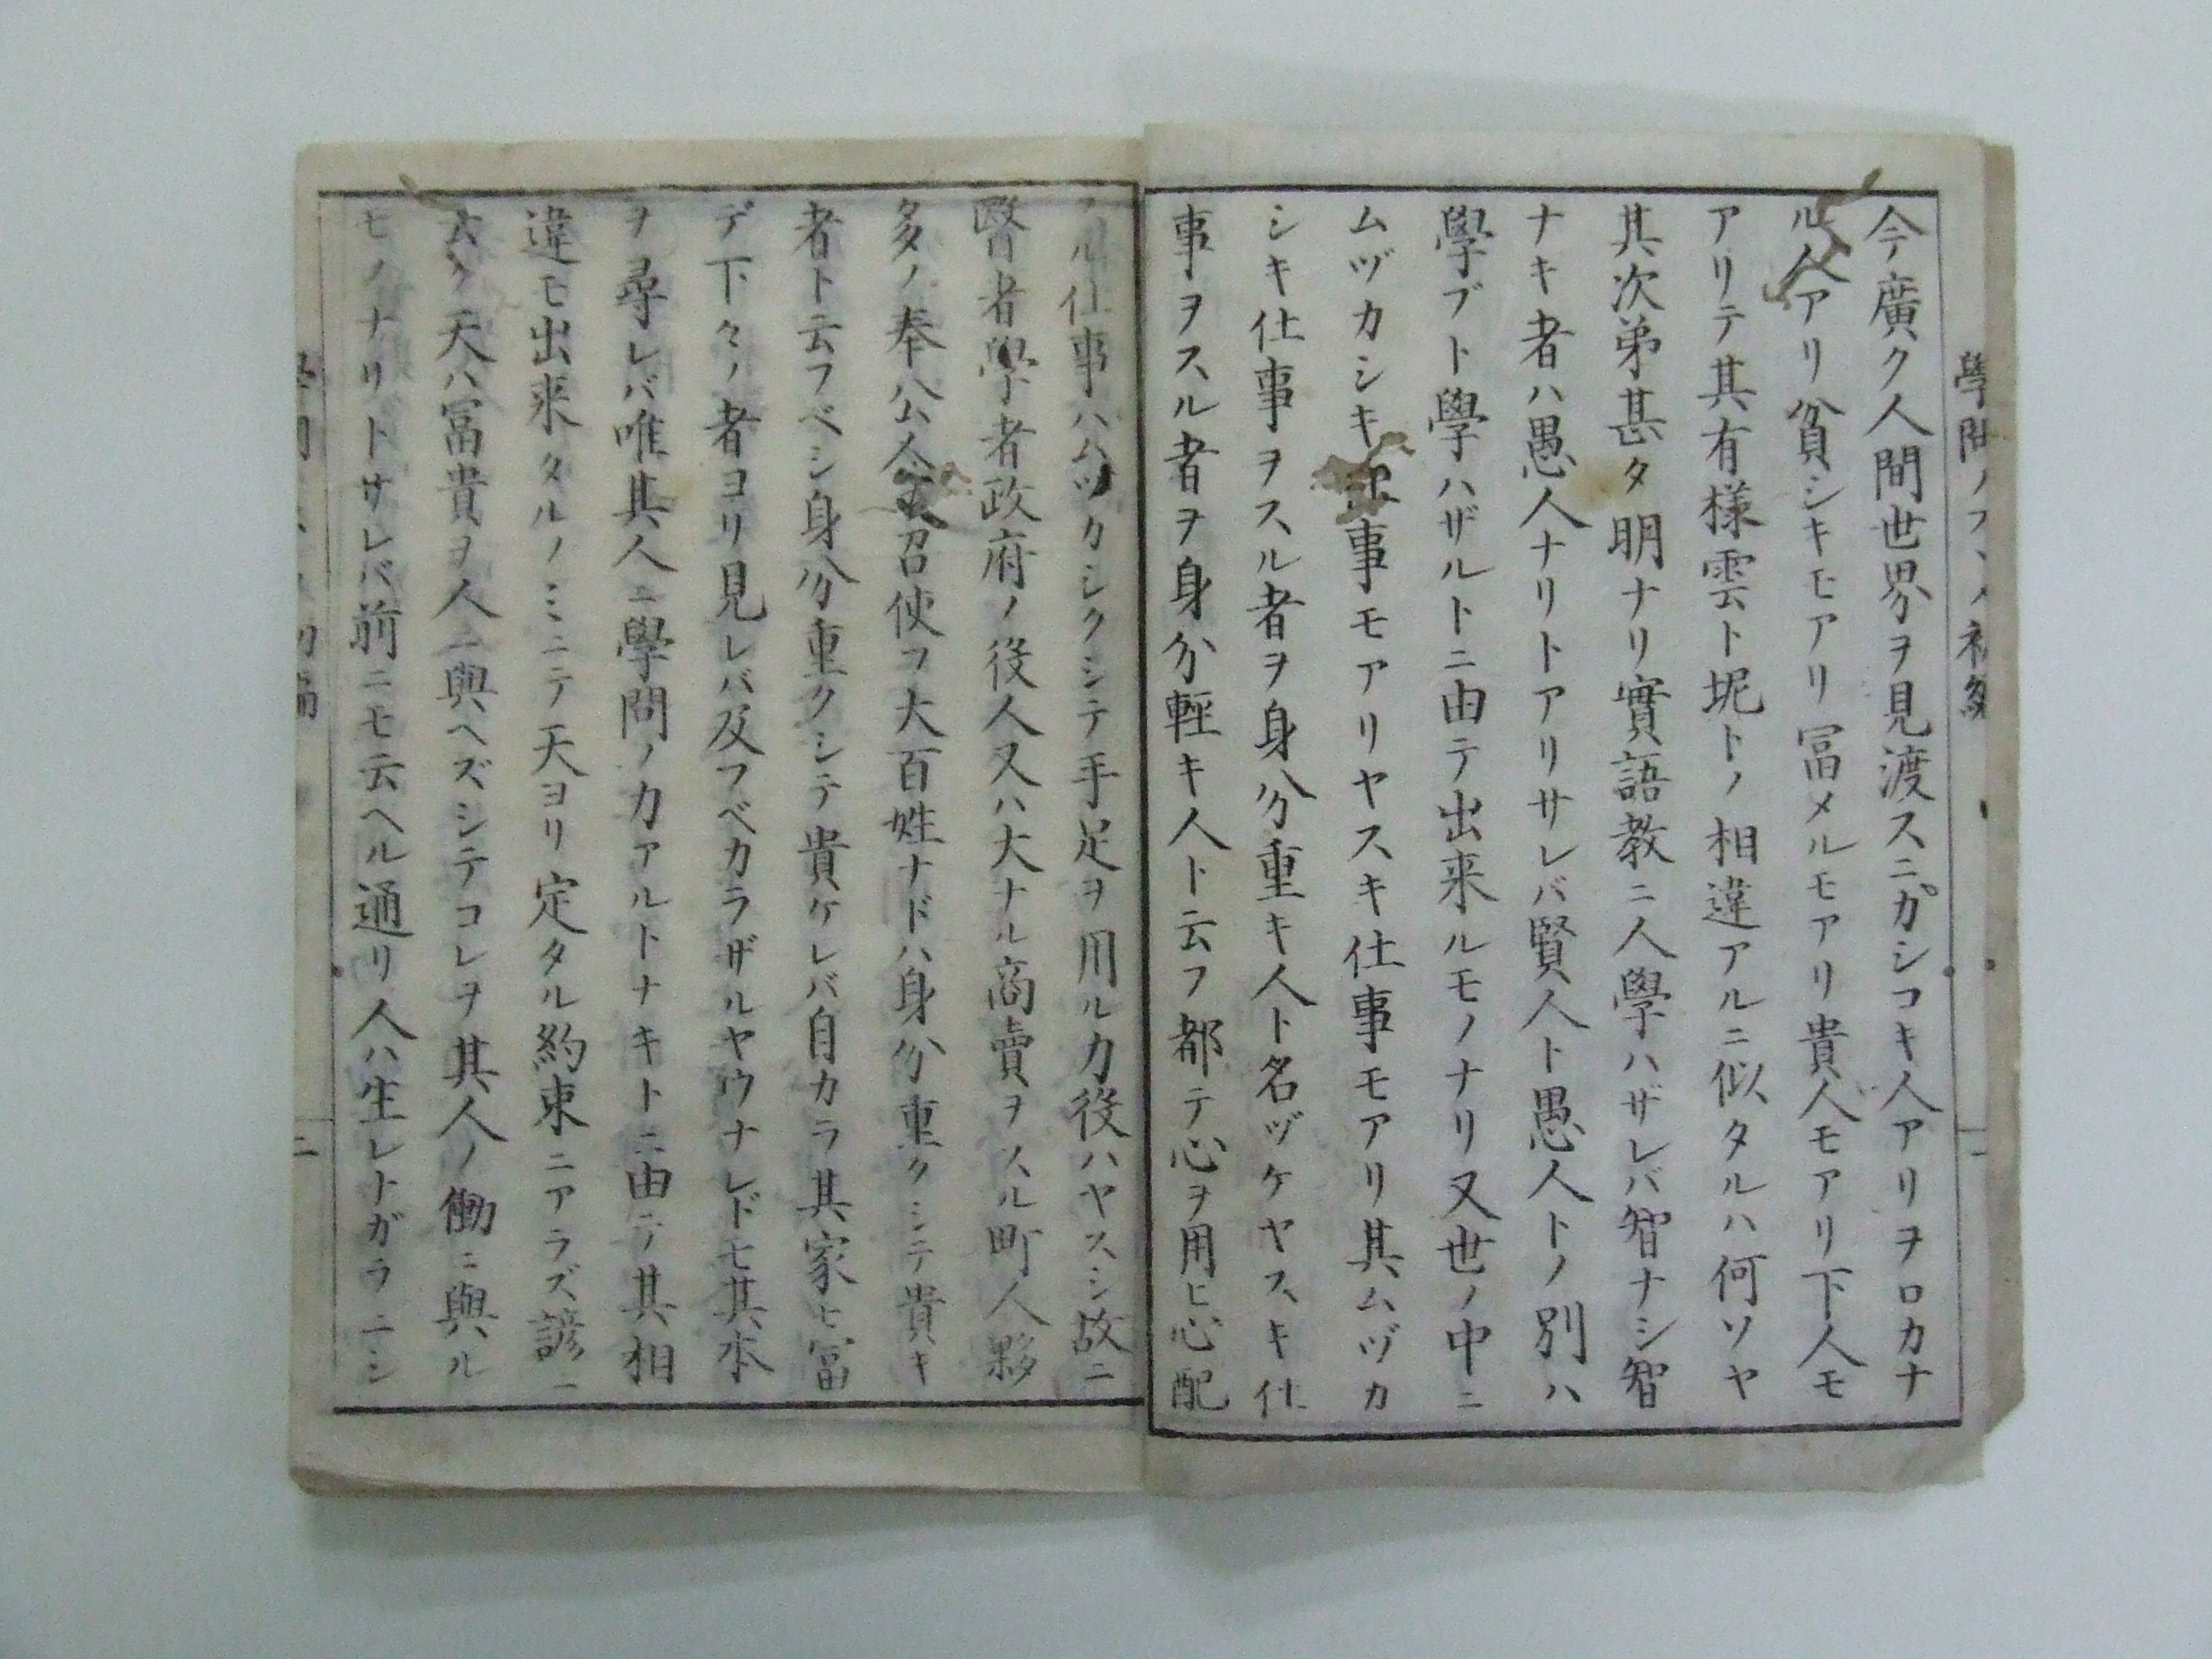 今廣ク人間世界ヲ見渡スニカシコキ人アリヲロカナ
ル人アリ貧シキモアリ冨メルモアリ貴人モアリ下人モ
アリテ其有様雲ト坭トノ相違アルニ似タルハ何ソヤ
其次弟甚タ明ナリ實語教ニ人學ハザレバ智ナシ智
ナキ者ハ愚人ナリトアリサレバ賢人ト愚人トノ別ハ
學ブト學ハザルトニ由テ出来ルモノナリ又世ノ中ニ
ムヅカシキ事モアリヤスキ仕事モアリ其ムヅカ
シキ仕事ヲスル者ヲ身分重キ人ト名ヅケヤスキ仕
事ヲスル者ヲ身分輕キ人ト云フ都テ心ヲ用ヒ心配
ル仕事ハムヅカシクシテ手足ヲ用ル力役ハヤスシ故ニ
醫者學者政府ノ役人又ハ大ナル商賣ヲスル町人夥
多ノ奉公人ヲ召使フ大百姓ナドハ身分重クシテ貴キ
者ト云フベシ身分重クシテ貴ケレバ自カラ其家モ冨
デ下々ノ者ヨリ見レバ及フベカラザルヤウナレドモ其本
ヲ尋レバ唯其人ニ學問ノ力アルトナキトニ由テ其相
違モ出来タルノミニテ天ヨリ定タル約束ニアラズ諺ニ
云ク天ハ冨貴ヲ人ニ與ヘズシテコレヲ其人ノ働ニ與ル
モノナリトサレバ前ニモ云ヘル通リ人ハ生レトガラニシ
二